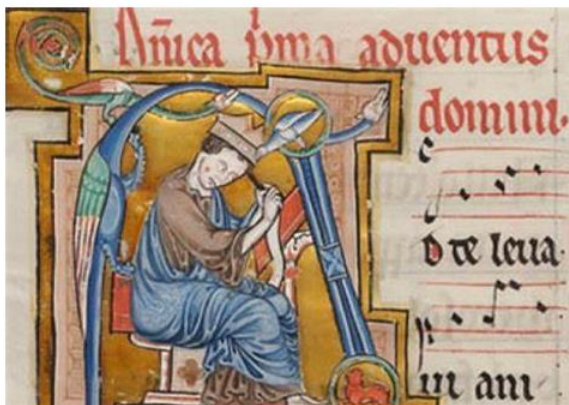 Dn̄ica pͥma aduentus
domini·
D te leua·
ui ani